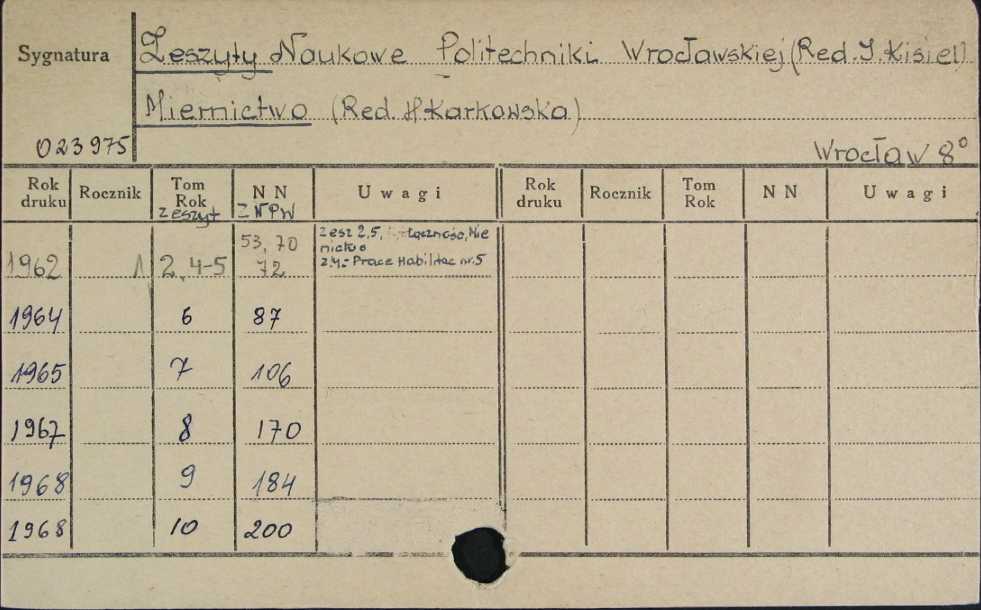 Sygnatura
Zeszyty Naukowe Politechniki Wrocławskiej (Red. I. Kisiel)
Miernictwo (Red. H. Karkowska)
023975
Wrocław 8°
Rok druku Rocznik Tom Rok zeszyt N N ZNPW Uwagi Rok druku Rocznik Tom Rok N N Uwagi
1962 1 2, 4-5 53, 70 72
Zesz 2,5, Łączność, Mie
nictwo
z.4.- Prace Habilitac nr. 5
1964 6 87
1965 7 106
1967 8 170
1968 9 184
1968 10 200